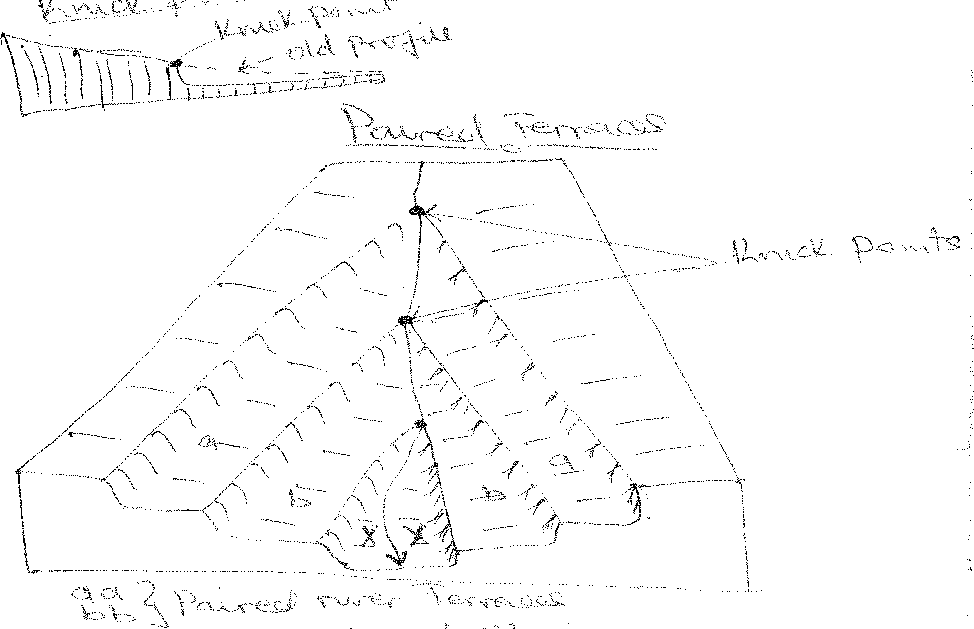 Knick
Knick point
old profile
Paired Terraces
Knick points
a
a
b
b
X X
aa
bb } Paired river Terraces